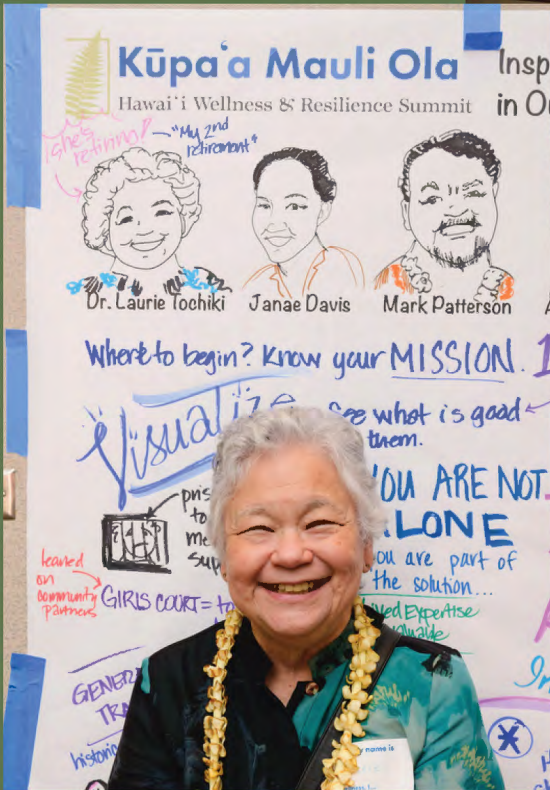 Kūpaʻa Mauli Ola
Hawaiʻi Wellness & Resilience Summit
Insp
in O
she's
retiring!
"My 2nd
retirement"
Dr. Laurie Tochiki
Janae Davis
Mark Patterson
Where to begin? Know your MISSION.
Visualize
See what is good
them.
pris
to
me
sup
YOU ARE NOT
ALONE
you are part of
the solution...
leaned
on
community
partners
GIRLS COURT = to
Lived Expertise
GENER
TRA
historic
name is